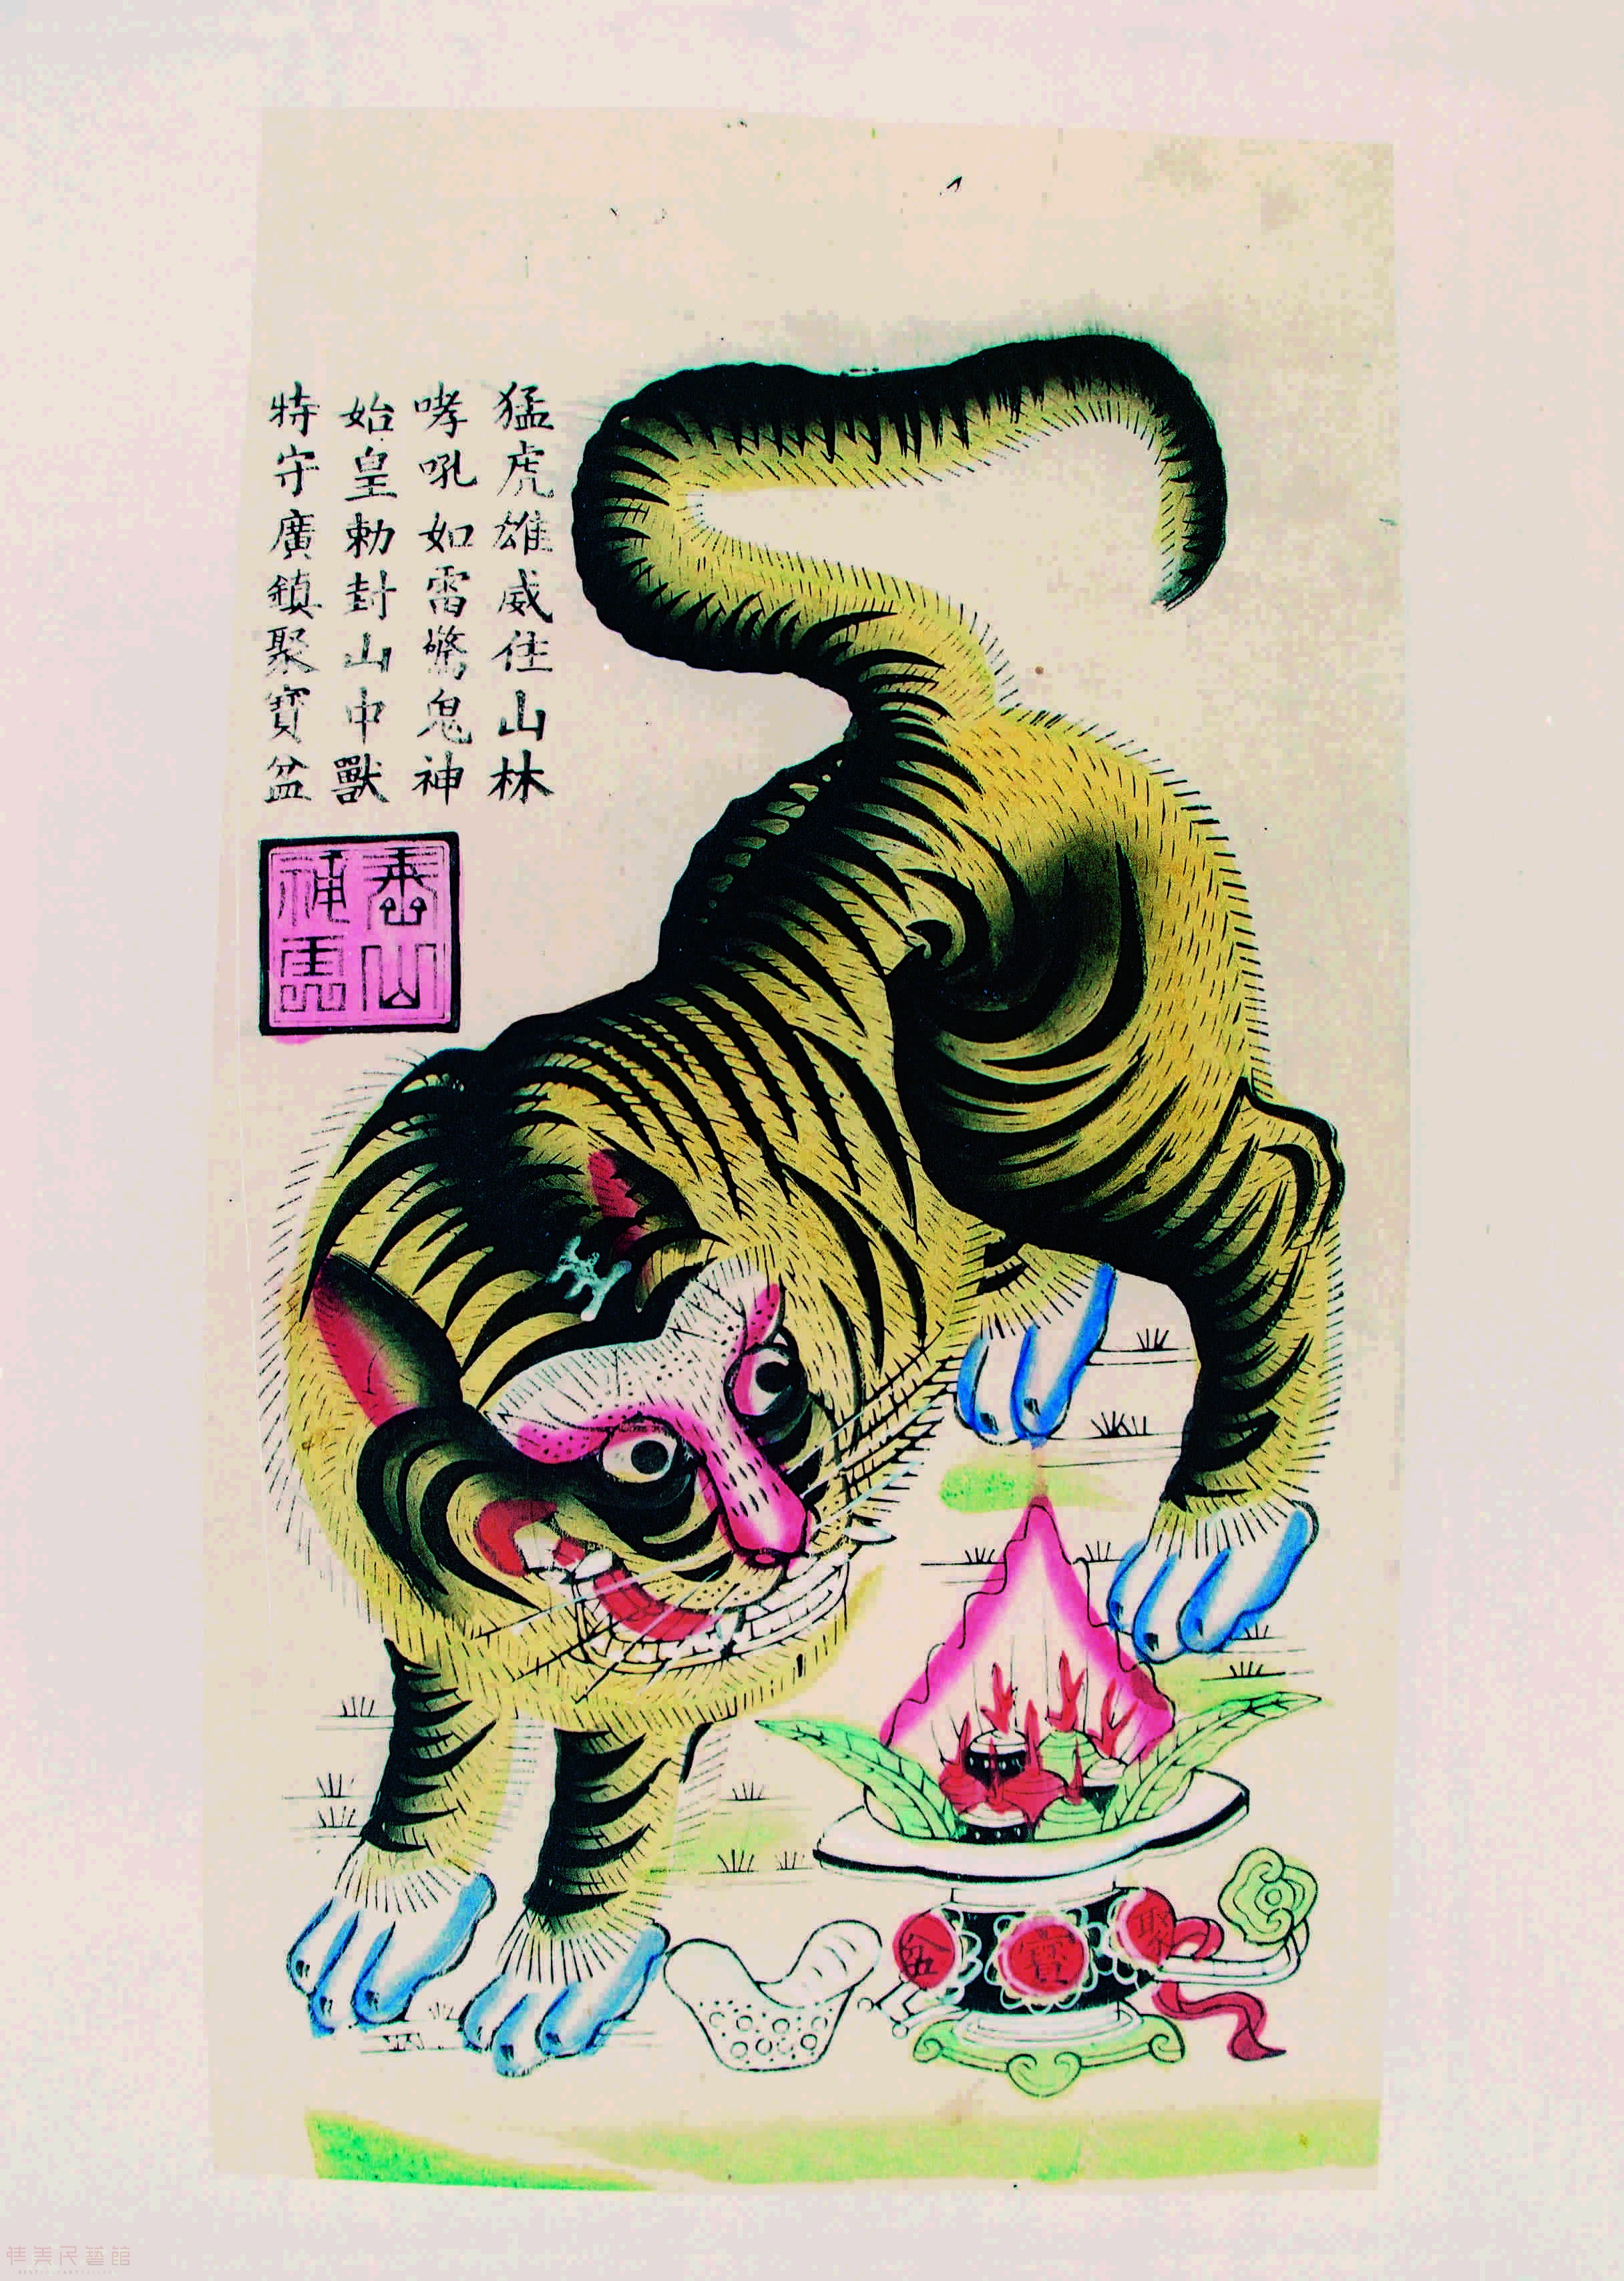 猛虎雄威住山林
哮吼如雷驚鬼神
始皇勅封山中獸
特守廣鎮聚寶盆
泰山
神虎
王
聚寶盆
佳美民藝館